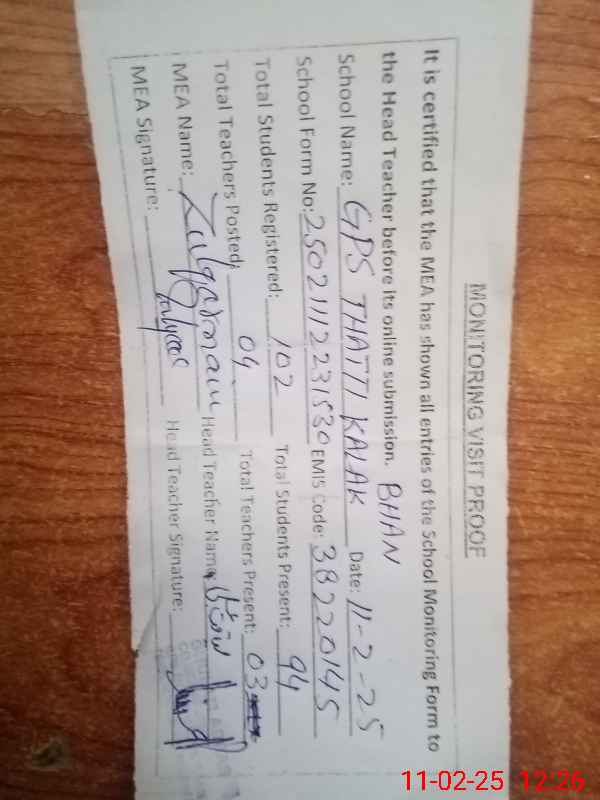 MONITORING VISIT PROOF
It is certified that the MEA has shown all entries of the School Monitoring Form to
the Head Teacher before its online submission. BHAN
School Name: GPS THATTI KALAK Date: 11-2-25
School Form No: 250211112231530 EMIS Code: 38220145
Total Students Registered: 102 Total Students Present: 94
Total Teachers Posted: 04 Total Teachers Present: 03
MEA Name: Head Teacher Name:
MEA Signature: Head Teacher Signature:
11-02-25 12:26